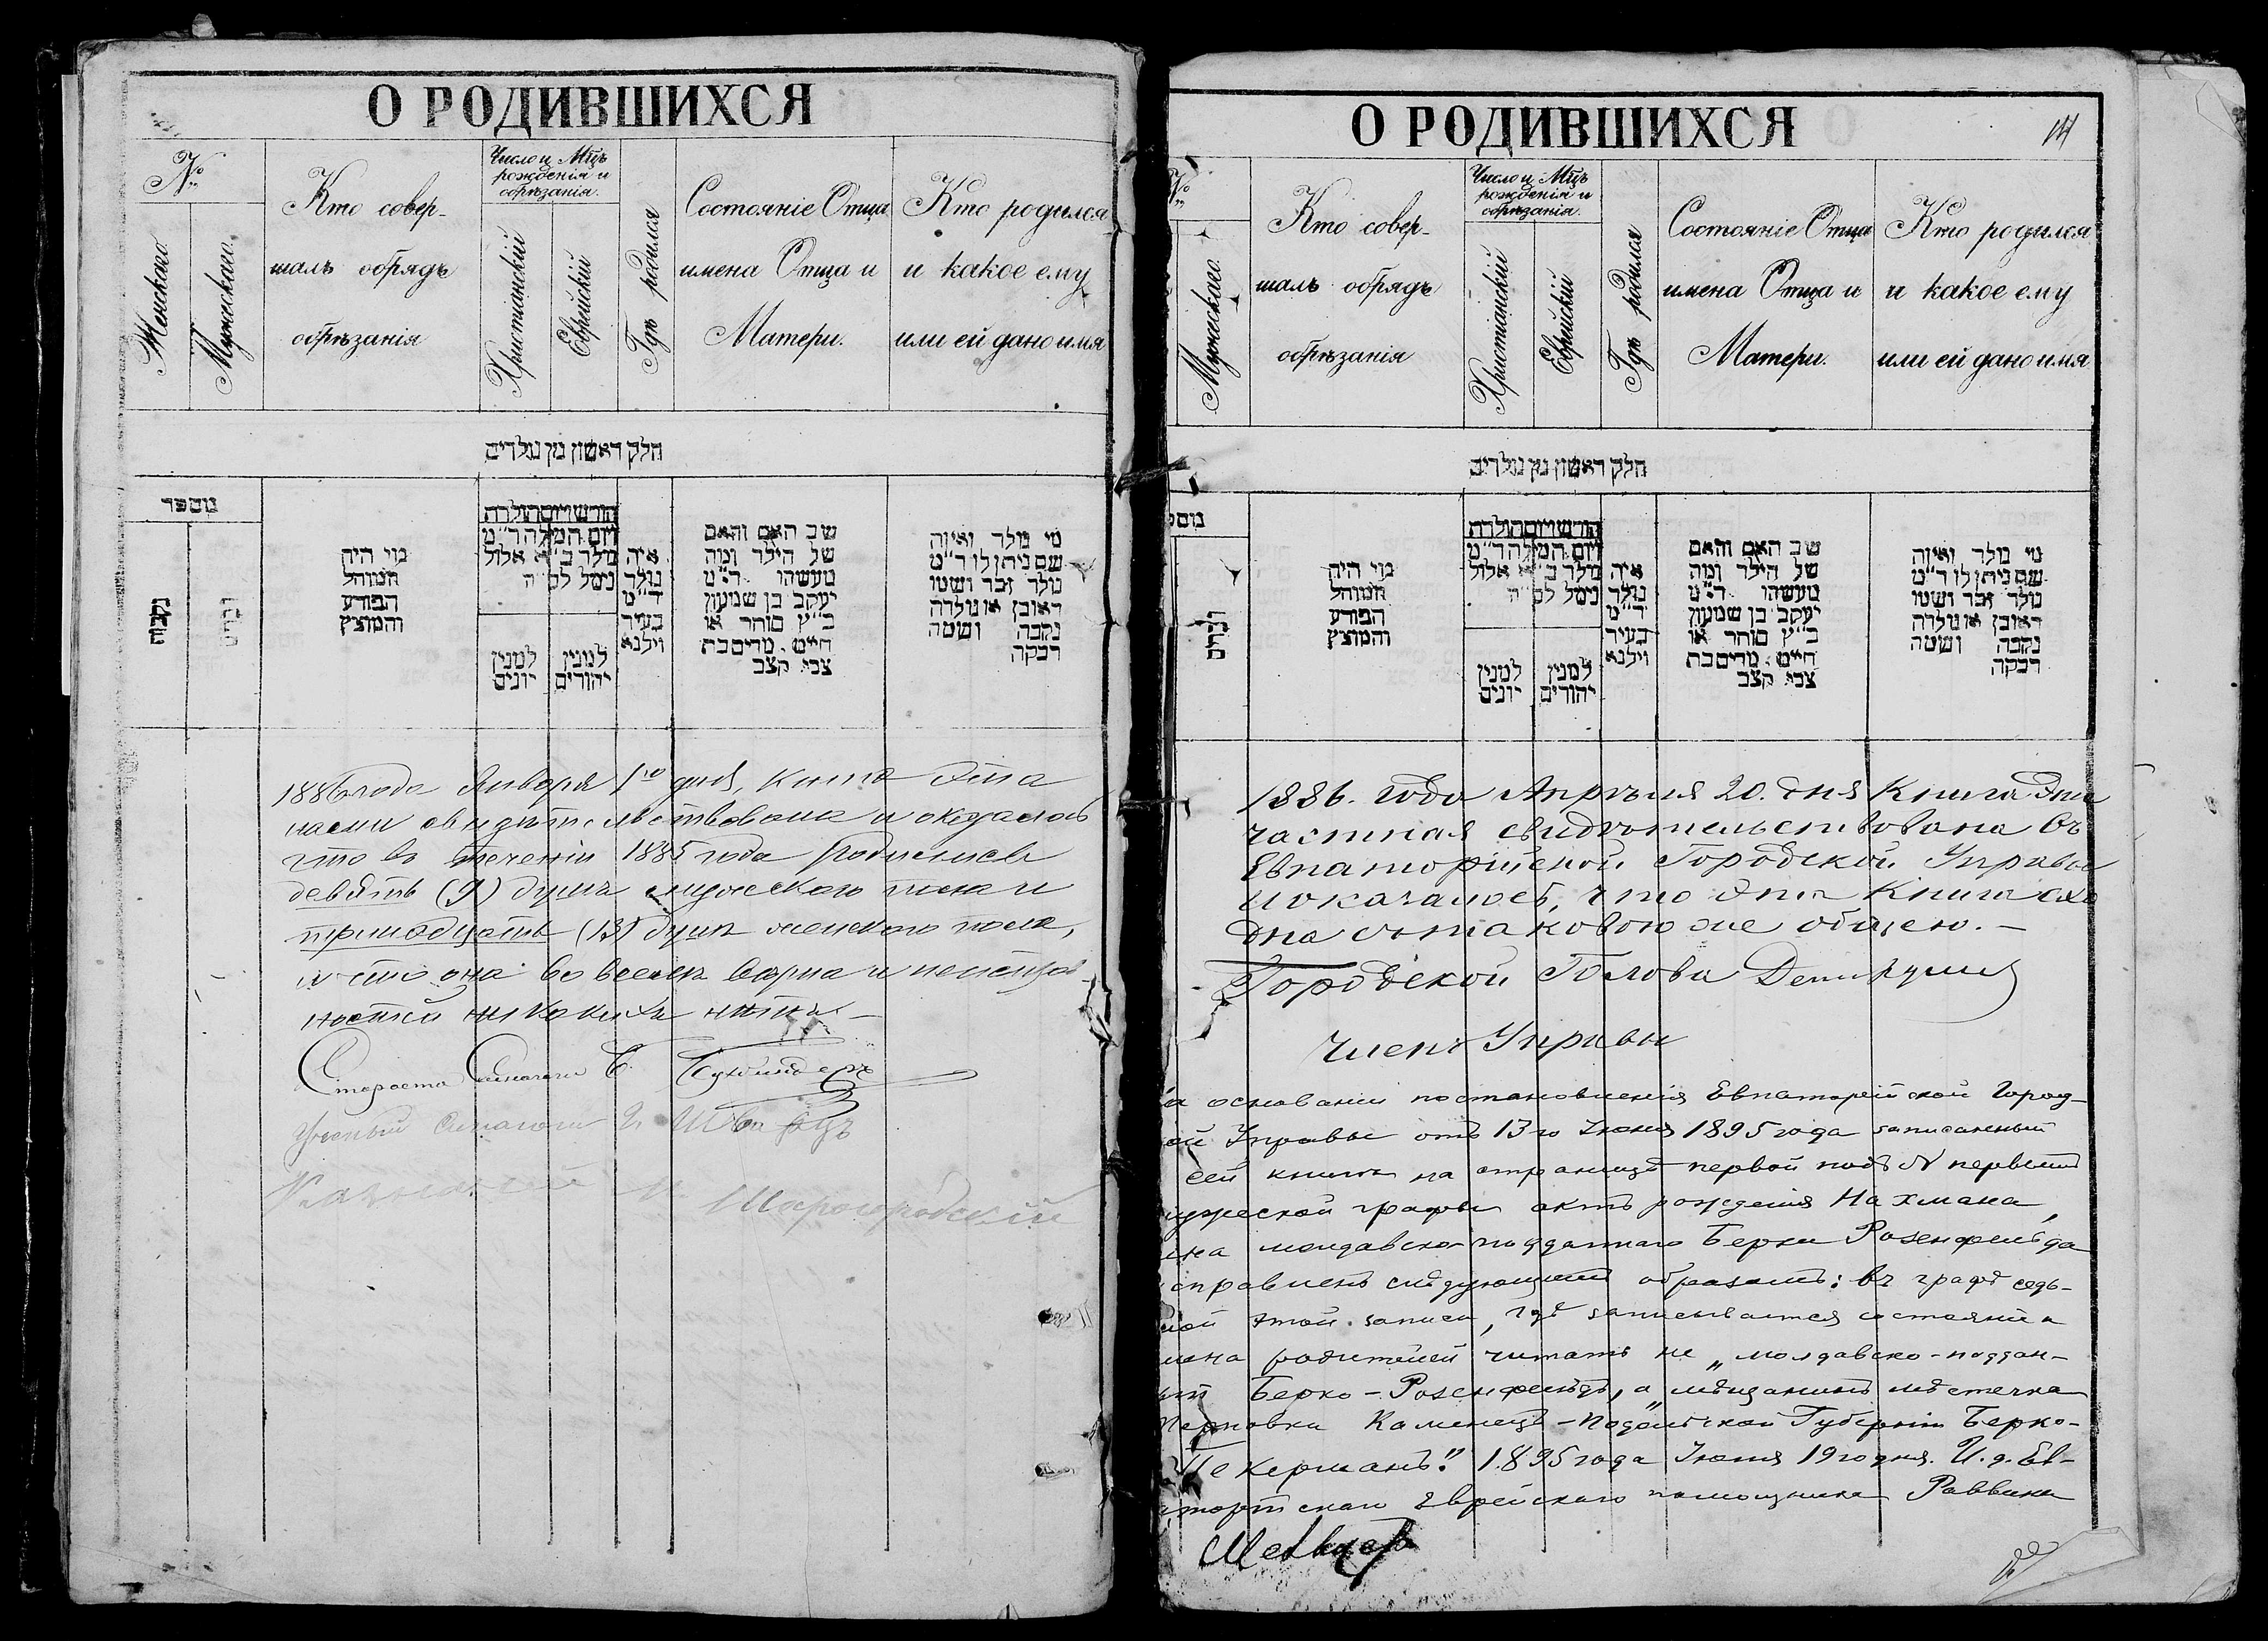 О РОДИВШИХСЯ
№
Женскаго.
Мужескаго.
Кто совер-
шалъ обрядъ
обрѣзанія
Число и Мцъ
рожденія и
обрѣзанія.
Христіанскій
Еврейскій
Гдѣ родился
Состояніе Отца
имена Отца и
Матери.
Кто родился
и какое ему
или ей дано имя
חלק ראשון מן נולדים
מספר
נקבות
זכרים
מי היה
המוהל
הפורע
והמוצץ
חודש ויום הולדת
ויום המילה ד"מ
נולד ב"א אלול
נימל לס' ה
למנין
יונים
למנין
יהודים
איה
נולד
ד"מ
בעיר
וילנא
שב האם והאם
של הילד ומה
מעשהו ד"מ
יעקב בן שמעון
כ"ץ סוחר או
חייט. מרים בת
צבי קצב
מי נולד ואיזה
שם ניתן לו ד"מ
נולד זכר ושמו
ראובן או נולדה
נקבה ושמה
רבקה
1886 года Января 1го дня, книга эта
нами свидѣтельствована и оказалось
что въ теченіи 1885 года родились
девять (9) душъ мужескаго пола и
тринадцать (13) душъ женскаго пола,
и что она во всемъ вѣрна и неисправ
ностей никакихъ нѣтъ. —
Староста Синагоги Б.
Ученый Синагоги И. Шварцъ
Казначей М. Шарогородскій
О РОДИВШИХСЯ
14
№
Мужескаго.
Кто совер-
шалъ обрядъ
обрѣзанія
Число и Мцъ
рожденія и
обрѣзанія.
Христіанскій
Еврейскій
Гдѣ родился
Состояніе Отца
имена Отца и
Матери.
Кто родился
и какое ему
или ей дано имя
חלק ראשון מן נולדים
מספ
זכרים
מי היה
המוהל
הפורע
והמוצץ
חודש ויום הולדת
ויום המילה ד"מ
נולד ב"א אלול
נימל לס' ה
למנין
יונים
למנין
יהודים
איה
נולד
ד"מ
בעיר
וילנא
שב האם והאם
של הילד ומה
מעשהו ד"מ
יעקב בן שמעון
כ"ץ סוחר או
חייט. מרים בת
צבי קצב
מי נולד ואיזה
שם ניתן לו ד"מ
נולד זכר ושמו
ראובן או נולדה
נקבה ושמה
רבקה
1886. года Апрѣля 20. дня Книга эта
частная свидѣтельствована Въ
Евпаторійской Городской Управѣ
и оказалось, что эта Книга схо
дна съ таковою же общею. —
Городской Голова
Членъ Управы
а основаніи постановленія Евпаторійской Город-
ой Управы отъ 13го Іюня 1895 года записанный
сей книги на страницѣ первой подъ № первымъ
ужеской графы актъ рожденія Нахмана,
ына молдавско-подданнаго Берки Розенфельда
справленъ слѣдующимъ образомъ: въ графѣ седь-
мой этой записи, гдѣ записывается состояніе и
мена родителей читать не „молдавско-поддан-
ый Берко-Розенфельдъ, а „мѣщанинъ мѣстечка
Каменецъ-Подольской Губерніи Берко-
Пекерманъ". 1895 года Іюня 19го дня. И. д. Ев-
торійскаго Еврейскаго помощника Раввина